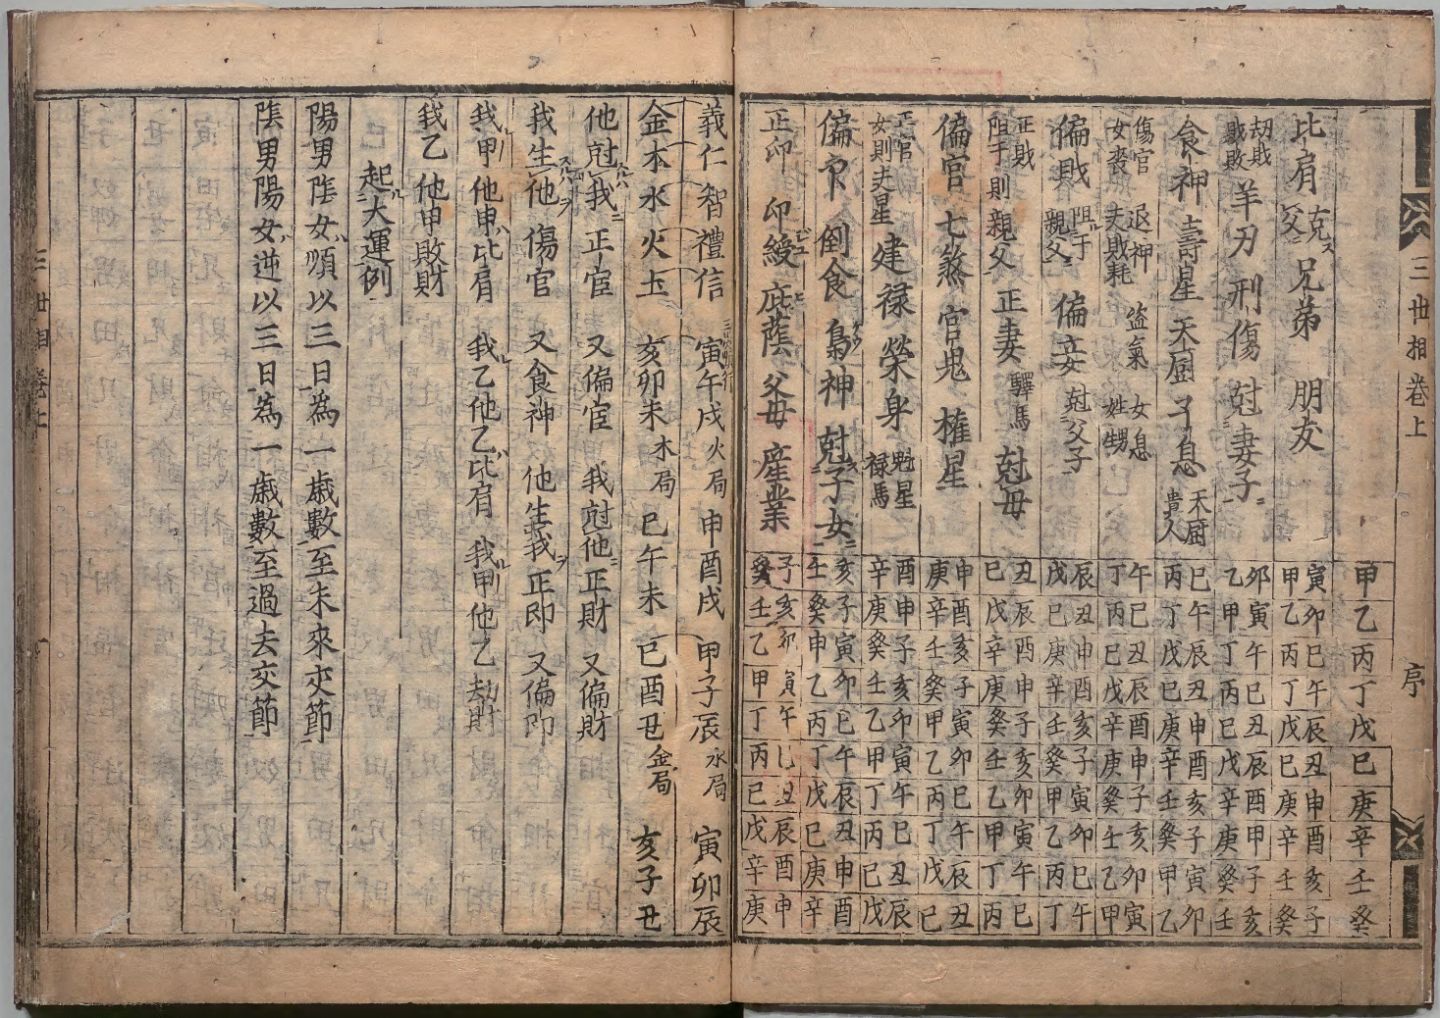 三世相卷上
序
比肩 克父 兄弟 朋友
劫敗 敗敗 羊刃 刑傷 尅妻子
食神 壽星 天厨 子息 天厨 貴人
傷官 退神 盗氣 女息
女喪 夫敗耗 姓甥
偏敗 阻于親父 偏妾 尅父子
正敗 阻于則親父 正妻 驛馬 尅母
偏官 七煞 官鬼 權星
正官 女則夫星 建禄 榮身 魁星 禄馬
偏卩 倒食 梟神 尅子女
正印 印綬 庇䕃 父母 産業
甲乙丙丁戊巳庚辛壬癸
寅卯巳午辰丑申酉亥子
甲乙丙丁戊巳庚辛壬癸
卯寅午巳丑辰酉申子亥
乙甲丁丙巳戊辛庚癸壬
巳午辰丑申酉亥子寅卯
丙丁戊巳庚辛壬癸甲乙
午巳丑辰酉申子亥卯寅
丁丙巳戊辛庚癸壬乙甲
辰丑申酉亥子寅卯巳午
戊巳庚辛壬癸甲乙丙丁
丑辰酉申子亥卯寅午巳
巳戊辛庚癸壬乙甲丁丙
申酉亥子寅卯巳午辰丑
庚辛壬癸甲乙丙丁戊巳
酉申子亥卯寅午巳丑辰
辛庚癸壬乙甲丁丙巳戊
亥子寅卯巳午辰丑申酉
壬癸申乙丙丁戊巳庚辛
子亥卯寅午巳丑辰酉申
癸壬乙甲丁丙巳戊辛庚
義仁智禮信 寅午戌火局 申酉戌 甲子辰水局 寅卯辰
金木水火土 亥卯未木局 巳午未 巳酉丑金局 亥子丑
他尅我正官 又偏官 我尅他正財 又偏財
我生他傷官 又食神 他生我正印 又偏印
我甲他申比肩 我乙他乙比肩 我甲他乙劫財
我乙他甲敗財
起大運例
陽男陰女順以三日為一歳數至未來交節
陰男陽女逆以三日為一歳數至過去交節
三世相卷上 一